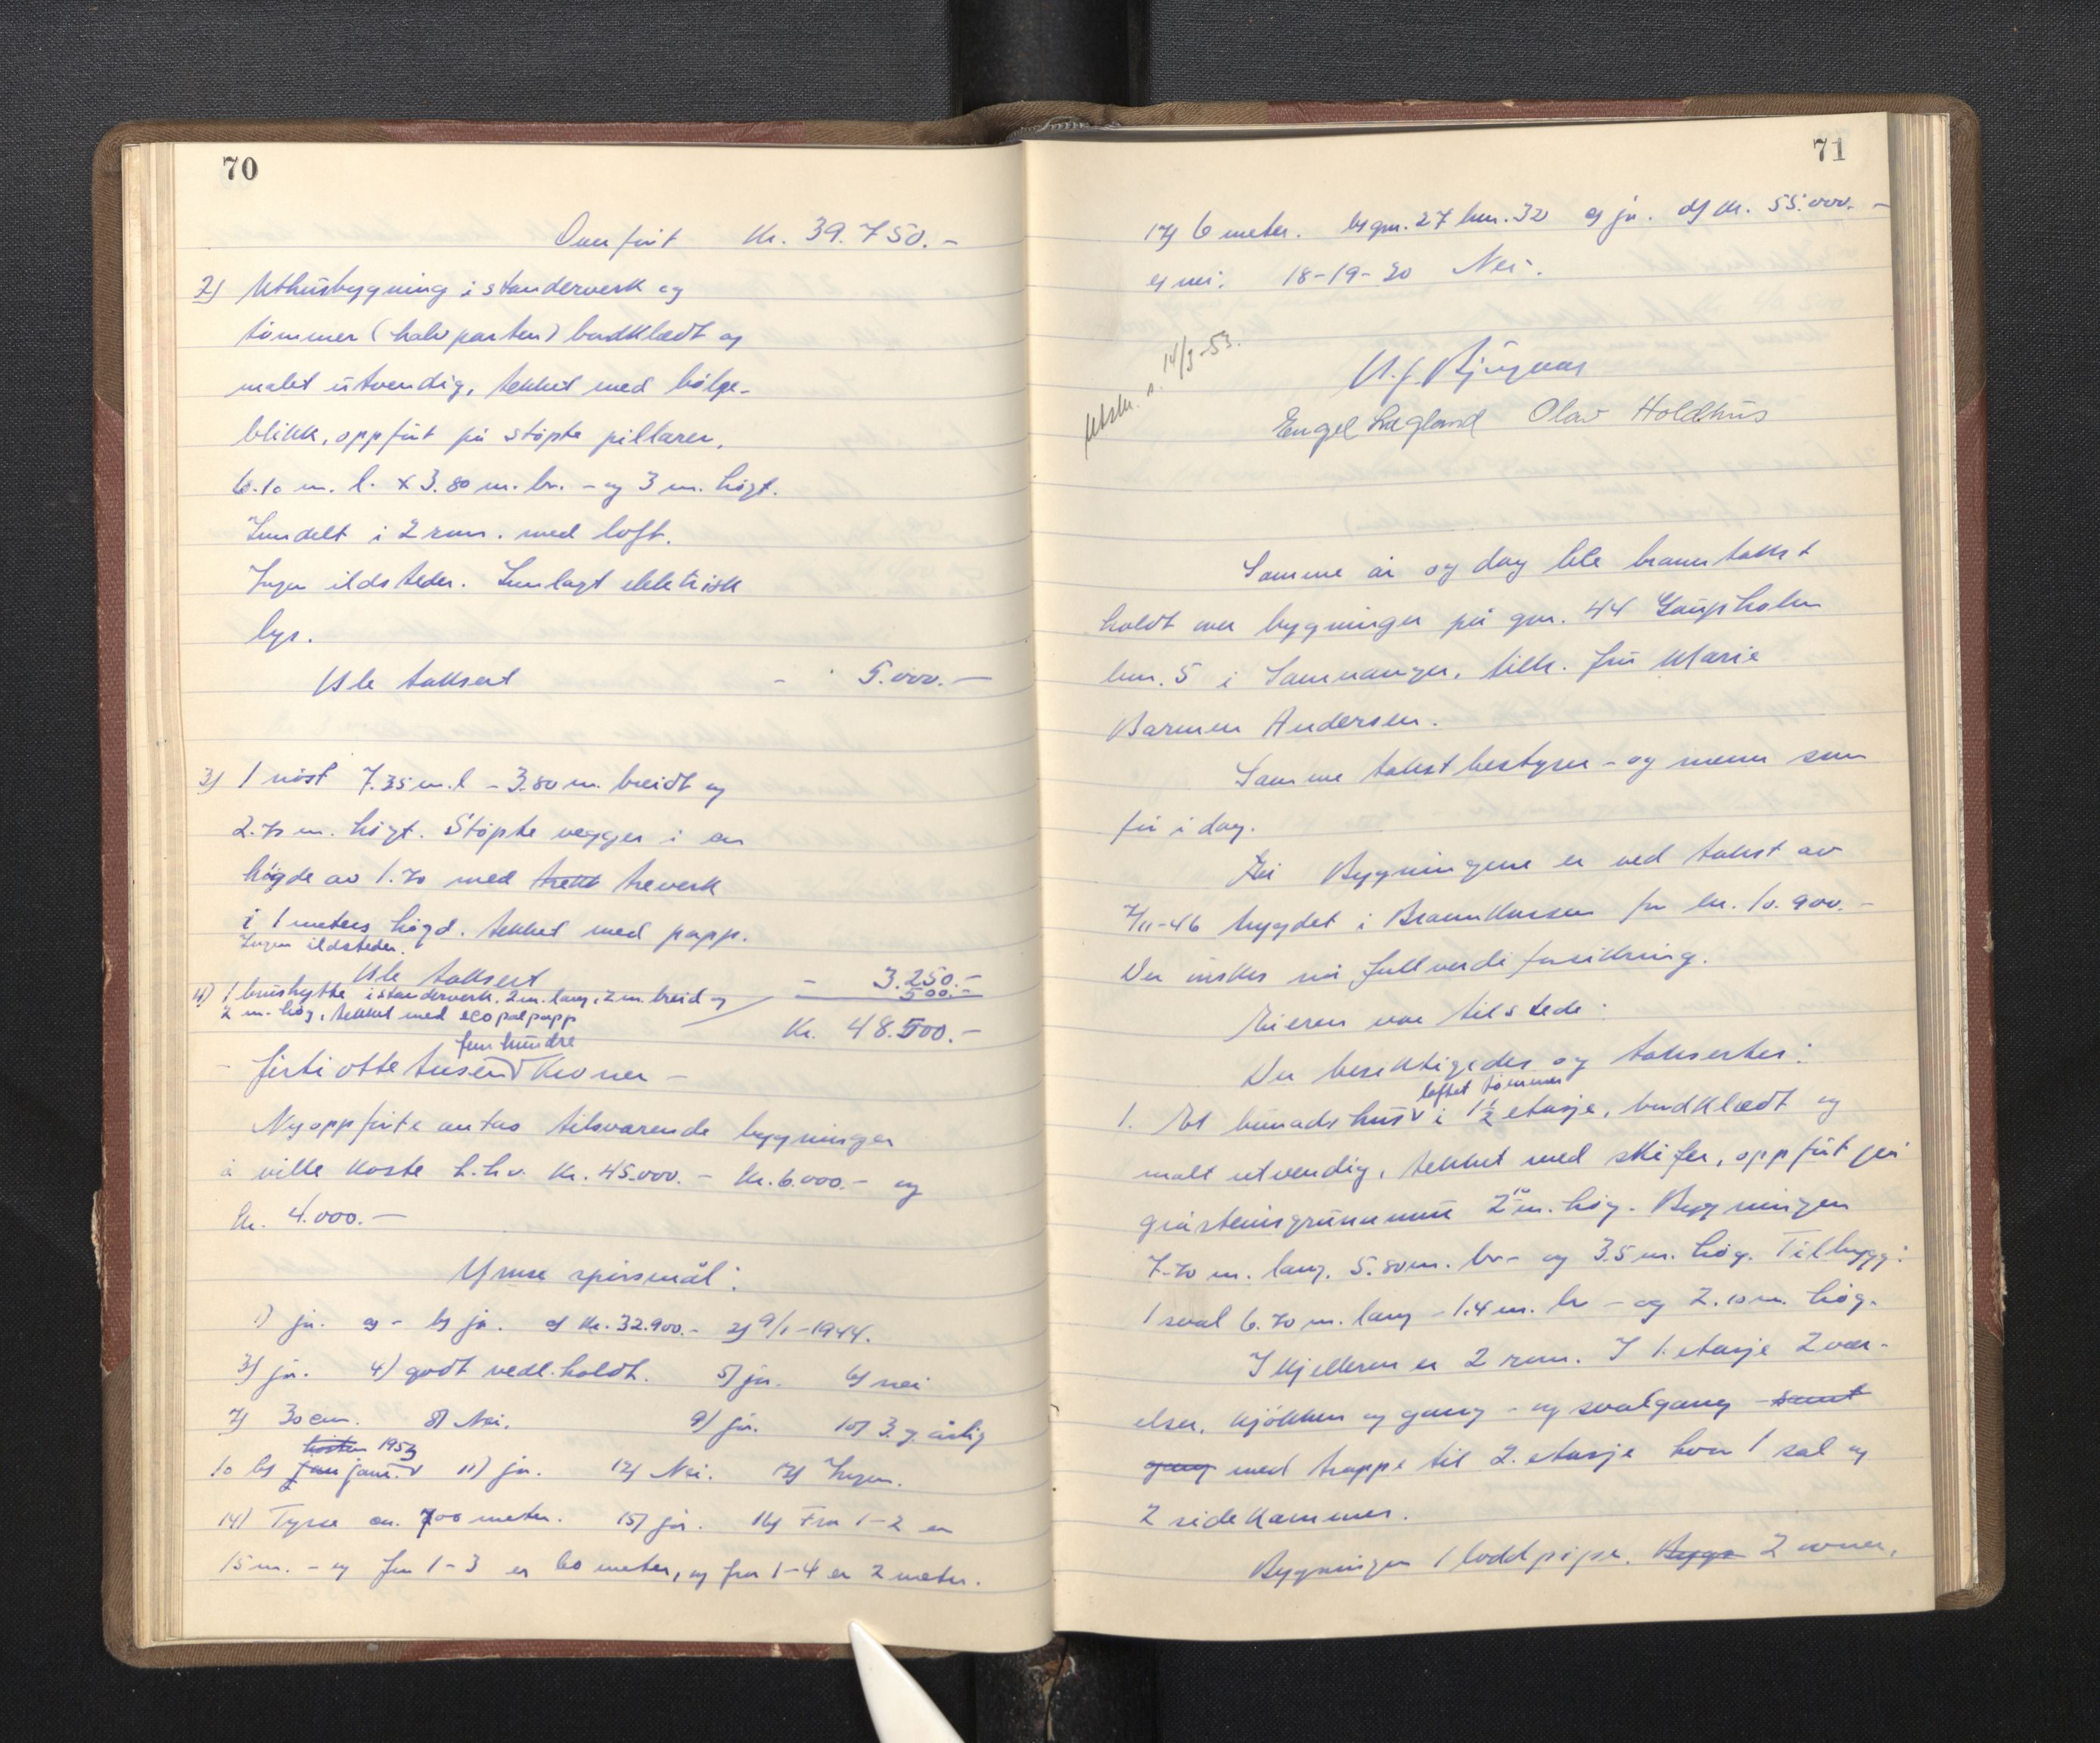 70
Overført Kr. 39.750.-
2) Uthusbygning i standerverk og
tømmer (halvparten) bordklædt og
malet utvendig, tekket med bølge-
blikk, oppført på støpte pillarer.
6.10 m. l. x 3.80 m. br. - og 3 m. høgt.
Inndelt i 2 rum. med loft.
Ingen ildsteder. Innlagt elektrisk
lys.
Ble taksert - 5.000.-
3) 1 nøst 7.35 m. l - 3.80 m. breidt og
2.70 m. høgt. Støpte vegger i en
høgde av 1.70 med trekk treverk
i 1 meters høgd. Tekket med papp.
Ingen ildsteder.
Ble taksert - 3.250.-
4) 1 hushytte i standerverk. 2 m. lang, 2 m. breid og
2 m. høg, tekket med ecopalpapp 500.-
Kr. 48.500.-
fem hundre
- førtiotte tusen kroner -
Nyoppførte antas tilsvarende bygninger
å ville koste h.h.v. Kr. 45.000.- Kr. 6.000.- og
Kr. 4.000.-
Ymse spørsmål:
1) ja. a) - b) ja. c) Kr. 32.900.- 2) 9/1-1944.
3) ja. 4) godt vedl.holdt. 5) ja. 6) nei
7) 30 cm. 8) Nei. 9) ja. 10) 3. g. årlig
høsten 1953
10 b) jan. 11) ja. 12) Nei. 13) Ingen.
14) Tysse ca. 700 meter. 15) ja. 16) Fra 1-2 er
15 m. - og fra 1-3 er 60 meter, og fra 1-4 er 2 meter.
71
17) 6 meter. b) gnr. 27 bnr. 32 c) ja. d) Kr. 55.000.-
e) nei. 18-19-20 Nei.
Utskr. s. 14/3-53.
Engel Lægland Olav Holdhus
Samme år og dag ble branntakst
holdt over bygninger på gnr. 44 Gaupholm
bnr. 5 i Samnanger, tilh. fru Marie
Barmen Andersen.
Samme takstbestyrer - og menn som
før i dag.
Bygningene er ved takst av
7/11-46 trygdet i Brannkassen for kr. 10.900.-
Der ønskes nå fullverdiforsikring.
Eieren var tilstede.
Der besiktigedes og taksertes:
loftet tømmer
1. Et bunadshus i 1 1/2 etasje, bordklædt og
malt utvendig, tekket med skifer, oppført på
gråsteinsgrunnmur 2.10 m. høg. Bygningen
7.70 m. lang, 5.80 m. br - og 3.5 m. høg. Tilbygg:
1 sval 6.70 m. lang - 1.4 m. br - og 2.10 m. høg.
I kjelleren er 2 rum. I 1. etasje 2 vær-
elser, kjøkken og gang - og svalgang - samt
gang med trappe til 2. etasje hvor 1 sal og
2 sidekammer.
Bygningen 1 loddpipe. Bygn 2 ovner,